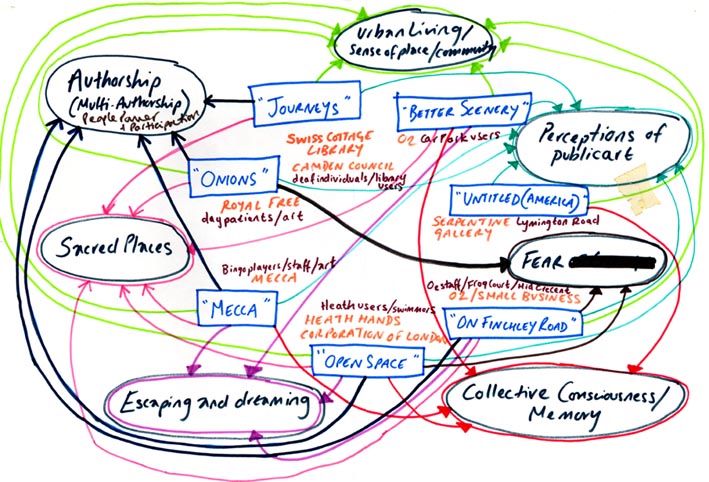 Urban Living/
sense of place/community
Authorship
(Multi-Authorship)
People Power
+ Participation
"JOURNEYS"
"BETTER SCENERY"
SWISS COTTAGE
LIBRARY
O2 Car Park users
Perceptions of
public art
CAMDEN COUNCIL
deaf individuals/library
users
"ONIONS"
"UNTITLED (AMERICA)"
ROYAL FREE
day patients/art
SERPENTINE Lymington Road
GALLERY
Sacred Places
FEAR
Bingo players/staff/art
MECCA
O2 staff/Frog Court/Mid Crescent
O2/SMALL BUSINESS
"MECCA"
Heath users/swimmers
HEATH HANDS
CORPORATION OF LONDON
"ON FINCHLEY ROAD"
"OPEN SPACE"
Escaping and dreaming
Collective Consciousness/
Memory